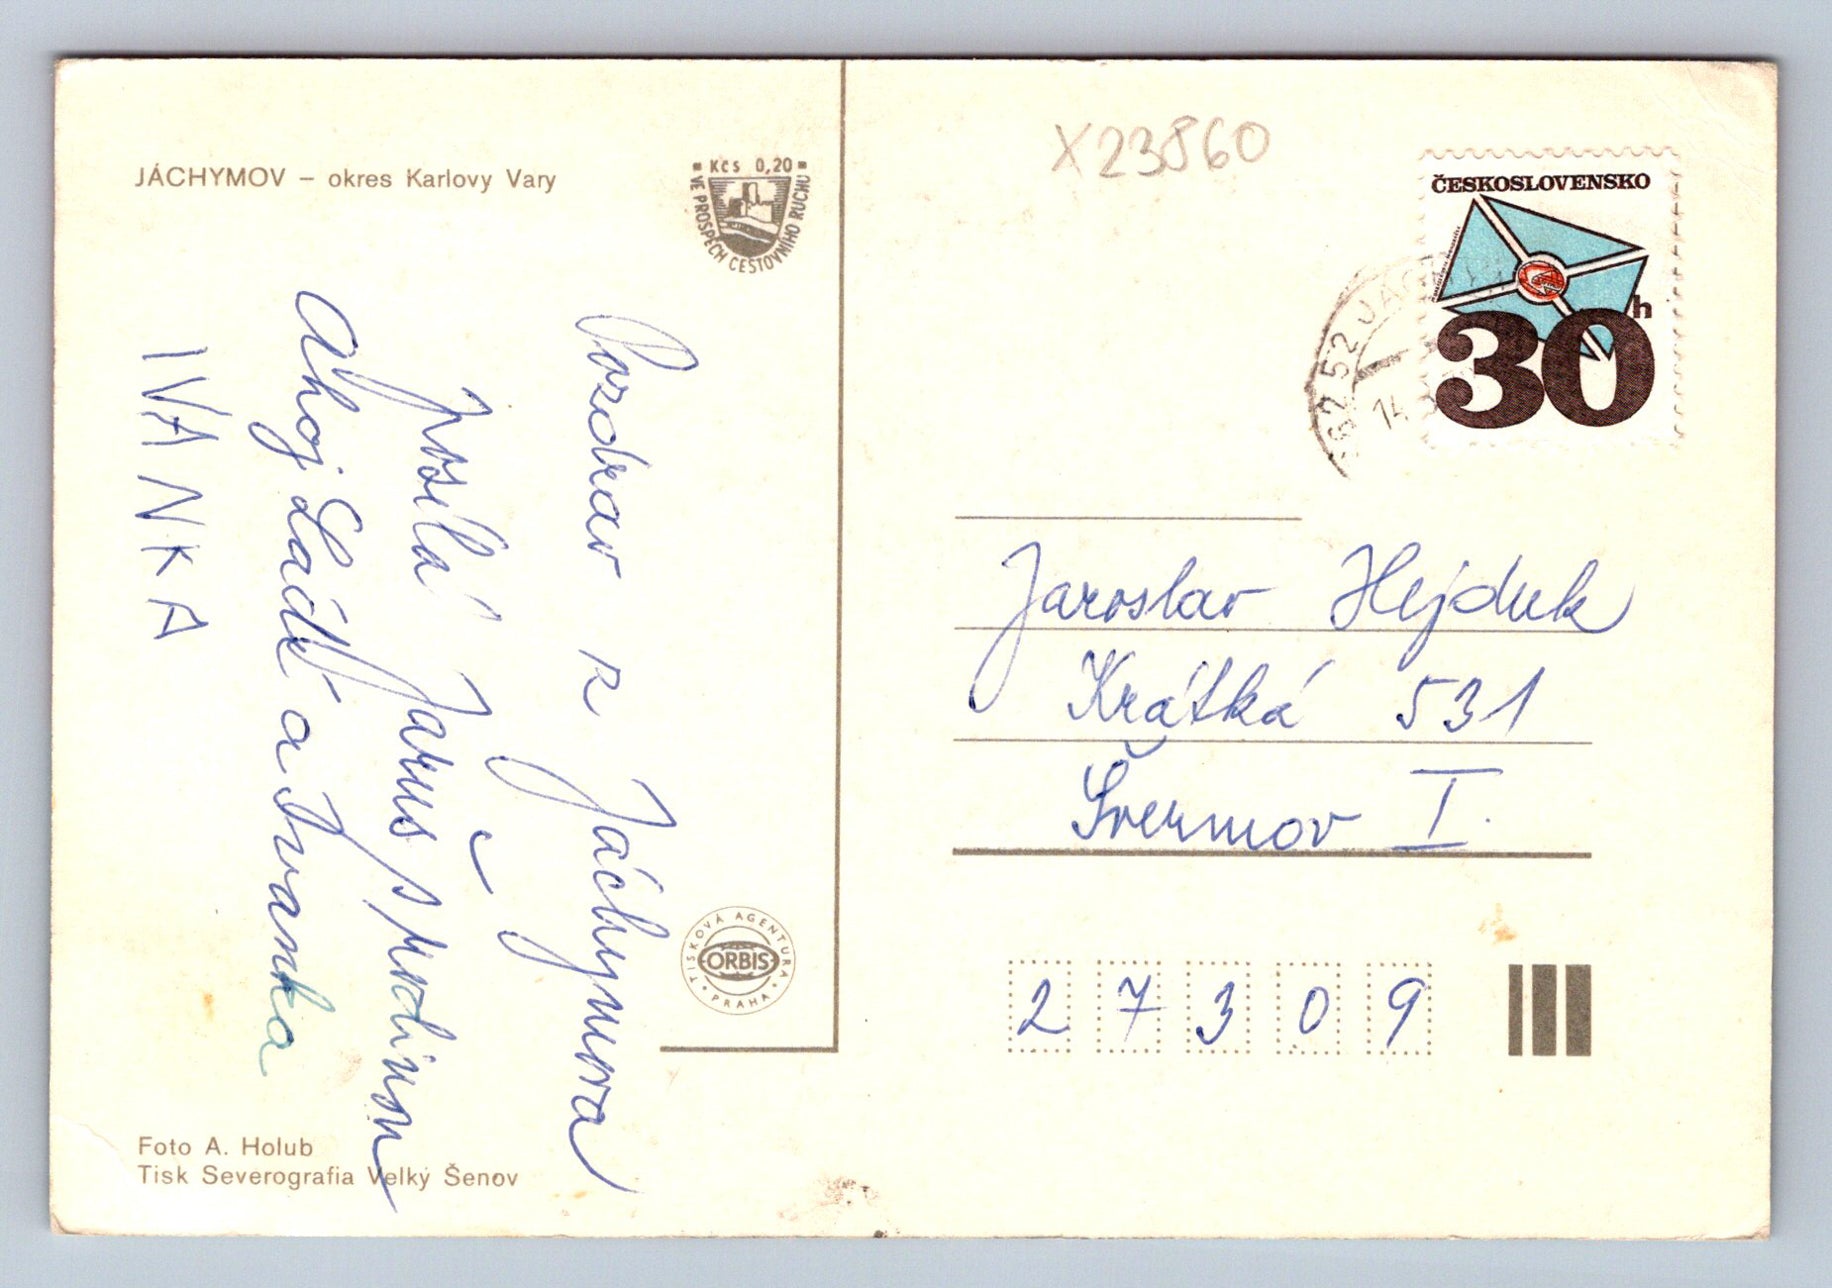 JÁCHYMOV – okres Karlovy Vary
Kčs 0,20
VE PROSPĚCH CESTOVNÍHO RUCHU
Pozdrav z Jáchymova
posílá Jaruš s rodinou
Ahoj Láďo a Ivanka
IVANKA
TISKOVÁ AGENTURA
ORBIS
PRAHA
Foto A. Holub
Tisk Severografia Velký Šenov
X23860
ČESKOSLOVENSKO
30 h
362 52 JÁC
14.
Jaroslav Hejduk
Krátká 531
Švermov I.
27309